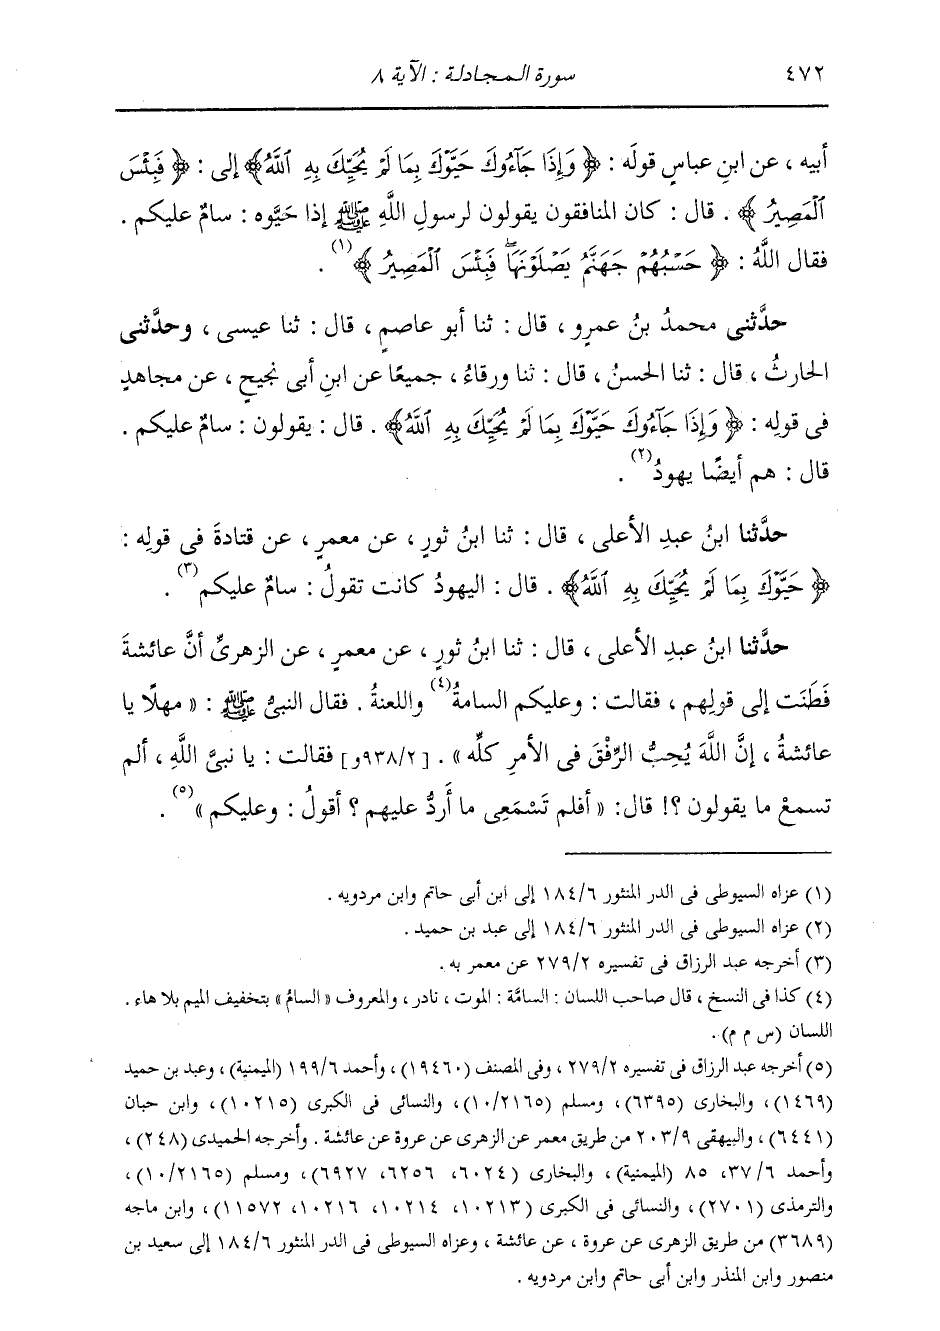 ٤٧٢ سورة المجادلة : الآية ٨
أبيه ، عن ابنِ عباسٍ قولَه : ﴿ وَإِذَا جَآءُوكَ حَيَّوْكَ بِمَا لَمْ يُحَيِّكَ بِهِ ٱللَّهُ﴾ إلى : ﴿ فَبِئْسَ
ٱلْمَصِيرُ ﴾ . قال : كان المنافقون يقولون لرسولِ اللَّهِ ﷺ إذا حَيَّوه : سامٌ عليكم .
فقال اللَّهُ : ﴿ حَسْبُهُمْ جَهَنَّمُ يَصْلَوْنَهَاۖ فَبِئْسَ ٱلْمَصِيرُ ﴾(١) .
حدَّثنى محمدُ بنُ عمرٍو ، قال : ثنا أبو عاصمٍ ، قال : ثنا عيسى ، وحدَّثنى
الحارثُ ، قال : ثنا الحسنُ ، قال : ثنا ورقاءُ ، جميعًا عن ابنِ أبى نجيحٍ ، عن مجاهدٍ
فى قولِه : ﴿ وَإِذَا جَآءُوكَ حَيَّوْكَ بِمَا لَمْ يُحَيِّكَ بِهِ ٱللَّهُ﴾ . قال : يقولون : سامٌ عليكم .
قال : هم أيضًا يهودُ(٢) .
حدَّثنا ابنُ عبدِ الأعلى ، قال : ثنا ابنُ ثورٍ ، عن معمرٍ ، عن قتادةَ فى قولِه :
﴿ حَيَّوْكَ بِمَا لَمْ يُحَيِّكَ بِهِ ٱللَّهُ﴾ . قال : اليهودُ كانت تقولُ : سامٌ عليكم(٣) .
حدَّثنا ابنُ عبدِ الأعلى ، قال : ثنا ابنُ ثورٍ ، عن معمرٍ ، عن الزهرىِّ أنَّ عائشةَ
فَطَنَت إلى قولِهم ، فقالت : وعليكم السامةُ(٤) واللعنةُ . فقال النبىُّ ﷺ : « مهلًا يا
عائشةُ ، إنَّ اللَّهَ يُحِبُّ الرِّفْقَ فى الأمرِ كلِّه » . [٩٣٨/٢و] فقالت : يا نبىَّ اللَّهِ ، ألم
تسمعْ ما يقولون ؟! قال: « أفلم تَسْمَعِى ما أَردُّ عليهم ؟ أقولُ : وعليكم »(٥) .
(١) عزاه السيوطى فى الدر المنثور ١٨٤/٦ إلى ابن أبى حاتم وابن مردويه .
(٢) عزاه السيوطى فى الدر المنثور ١٨٤/٦ إلى عبد بن حميد .
(٣) أخرجه عبد الرزاق فى تفسيره ٢٧٩/٢ عن معمر به .
(٤) كذا فى النسخ ، قال صاحب اللسان : السامَّة : الموت ، نادر ، والمعروف « السامُ » بتخفيف الميم بلا هاء .
اللسان (س م م) .
(٥) أخرجه عبد الرزاق فى تفسيره ٢٧٩/٢ ، وفى المصنف (١٩٤٦٠) ، وأحمد ١٩٩/٦ (الميمنية) ، وعبد بن حميد
(١٤٦٩) ، والبخارى (٦٣٩٥) ، ومسلم (١٠/٢١٦٥) ، والنسائى فى الكبرى (١٠٢١٥) ، وابن حبان
(٦٤٤١) ، والبيهقى ٢٠٣/٩ من طريق معمر عن الزهرى عن عروة عن عائشة . وأخرجه الحميدى (٢٤٨) ،
وأحمد ٣٧/٦، ٨٥ (الميمنية) ، والبخارى (٦٠٢٤، ٦٢٥٦، ٦٩٢٧) ، ومسلم (١٠/٢١٦٥) ،
والترمذى (٢٧٠١) ، والنسائى فى الكبرى (١٠٢١٣، ١٠٢١٤، ١٠٢١٦، ١١٥٧٢) ، وابن ماجه
(٣٦٨٩) من طريق الزهرى عن عروة ، عن عائشة ، وعزاه السيوطى فى الدر المنثور ١٨٤/٦ إلى سعيد بن
منصور وابن المنذر وابن أبى حاتم وابن مردويه .